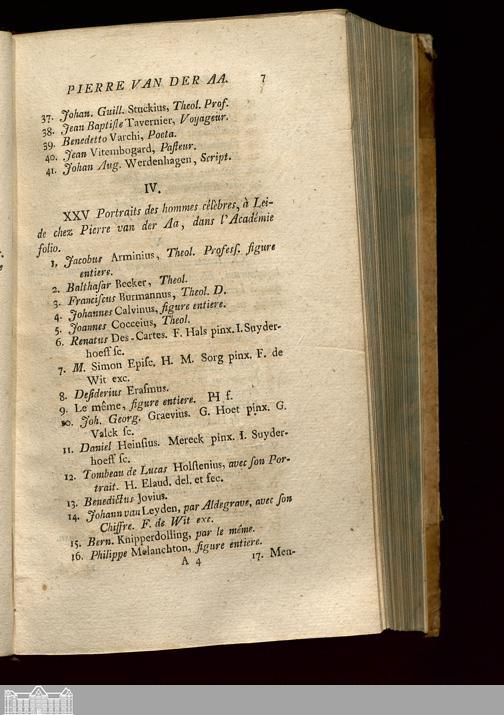 PIERRE VAN DER AA. 7
37. Johan. Guill. Stuckius, Theol. Prof.
38. Jean Baptiſte Tavernier, Voyageur.
39. Benedetto Varchi, Poeta.
40. Jean Vitembogard, Paſteur.
41. Johan Aug. Werdenhagen, Script.
IV.
XXV Portraits des hommes célèbres, à Lei-
de chez Pierre van der Aa, dans l'Académie
folio.
1. Jacobus Arminius, Theol. Profeſſ. figure
entiere.
2. Balthaſar Becker, Theol.
3. Franciſcus Burmannus, Theol. D.
4. Johannes Calvinus, figure entiere.
5. Joannes Cocceius, Theol.
6. Renatus Des-Cartes. F. Hals pinx. I. Suyder-
hoeff ſc.
7. M. Simon Epiſc. H. M. Sorg pinx. F. de
Wit exc.
8. Deſiderius Eraſmus.
9. Le même, figure entiere. PH f.
10. Joh. Georg. Graevius. G. Hoet pinx. G.
Valck ſc.
11. Daniel Heinſius. Mereck pinx. I. Suyder-
hoeff ſc.
12. Tombeau de Lucas Holſtenius, avec ſon Por-
trait. H. Elaud. del. et fec.
13. Benedictus Jovius.
14. Johann van Leyden, par Aldegrave, avec ſon
Chiffre. F. de Wit exc.
15. Bern. Knipperdolling, par le même.
16. Philippe Melanchton, figure entiere.
A 4 17. Men-